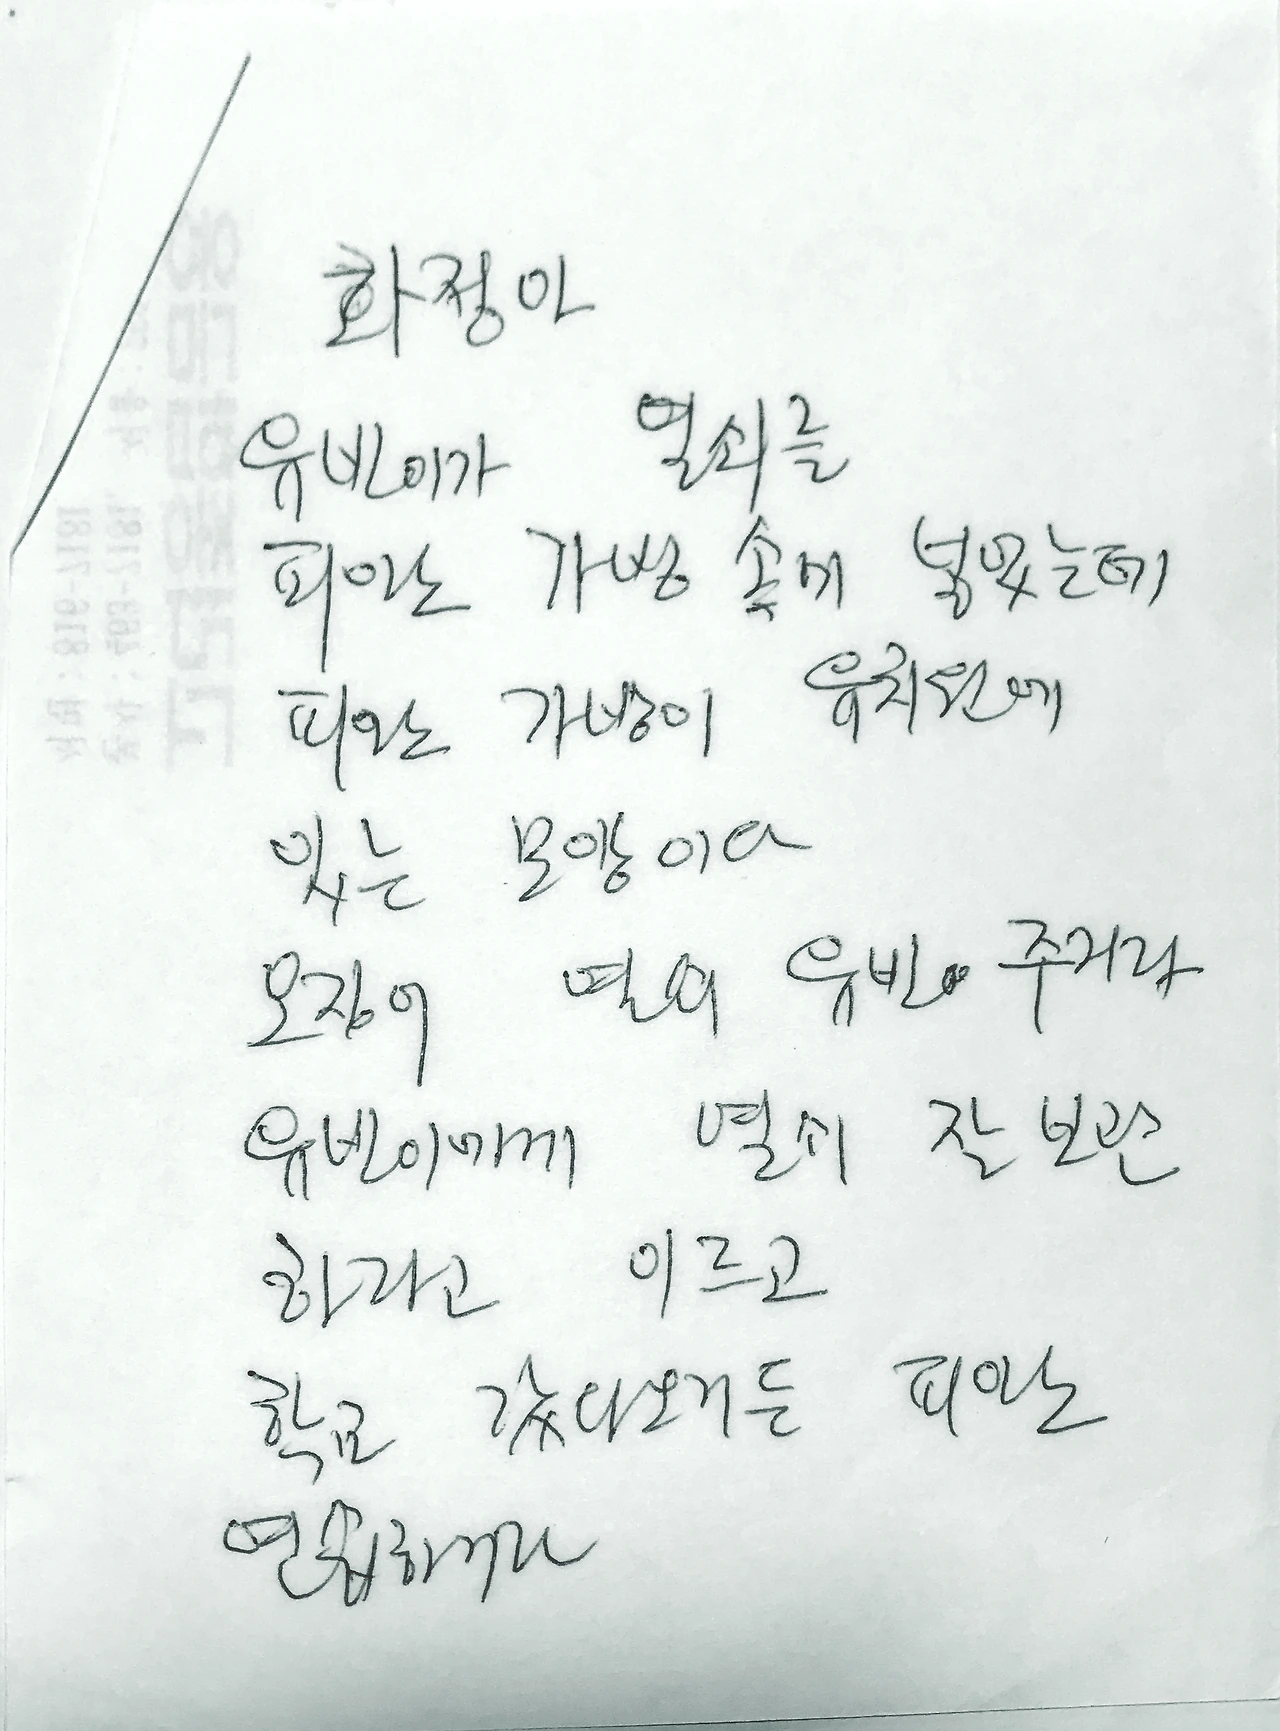 화정아
유빈이가 열쇠를
피아노 가방 속에 넣었는데
피아노 가방이 유치원에
있는 모양이다
오장어 열쇠 유빈 주거라
유빈이에게 열쇠 잘 보관
하라고 이르고
학교 갔다오거든 피아노
연습하거라
816-7181
463-7181